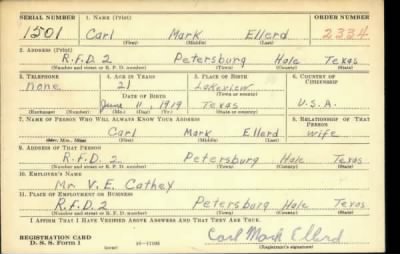 SERIAL NUMBER 1. NAME (Print) ORDER NUMBER
1501 Carl Mark Ellerd 2334
(First) (Middle) (Last)
2. ADDRESS (Print)
R.F.D. 2 Petersburg Hale Texas
(Number and street or R. F. D. number) (Town) (County) (State)
3. TELEPHONE 4. AGE IN YEARS 5. PLACE OF BIRTH 6. COUNTRY OF CITIZENSHIP
none 21 Lakeview
DATE OF BIRTH (Town or county)
June 11, 1919 Texas U.S.A.
(Exchange) (Number) (Mo.) (Day) (Yr.) (State or country)
7. NAME OF PERSON WHO WILL ALWAYS KNOW YOUR ADDRESS 8. RELATIONSHIP OF THAT PERSON
Carl Mark Ellerd wife
(Mr., Mrs., Miss) (First) (Middle) (Last)
9. ADDRESS OF THAT PERSON
R.F.D. 2 Petersburg Hale Texas
(Number and street or R. F. D. number) (Town) (County) (State)
10. EMPLOYER'S NAME
Mr. V. E. Cathey
11. PLACE OF EMPLOYMENT OR BUSINESS
R.F.D. 2 Petersburg Hale Texas
(Number and street or R. F. D. number) (Town) (County) (State)
I AFFIRM THAT I HAVE VERIFIED ABOVE ANSWERS AND THAT THEY ARE TRUE.
REGISTRATION CARD Carl Mark Ellerd
D. S. S. Form 1 (over) 16-17105 (Registrant's signature)